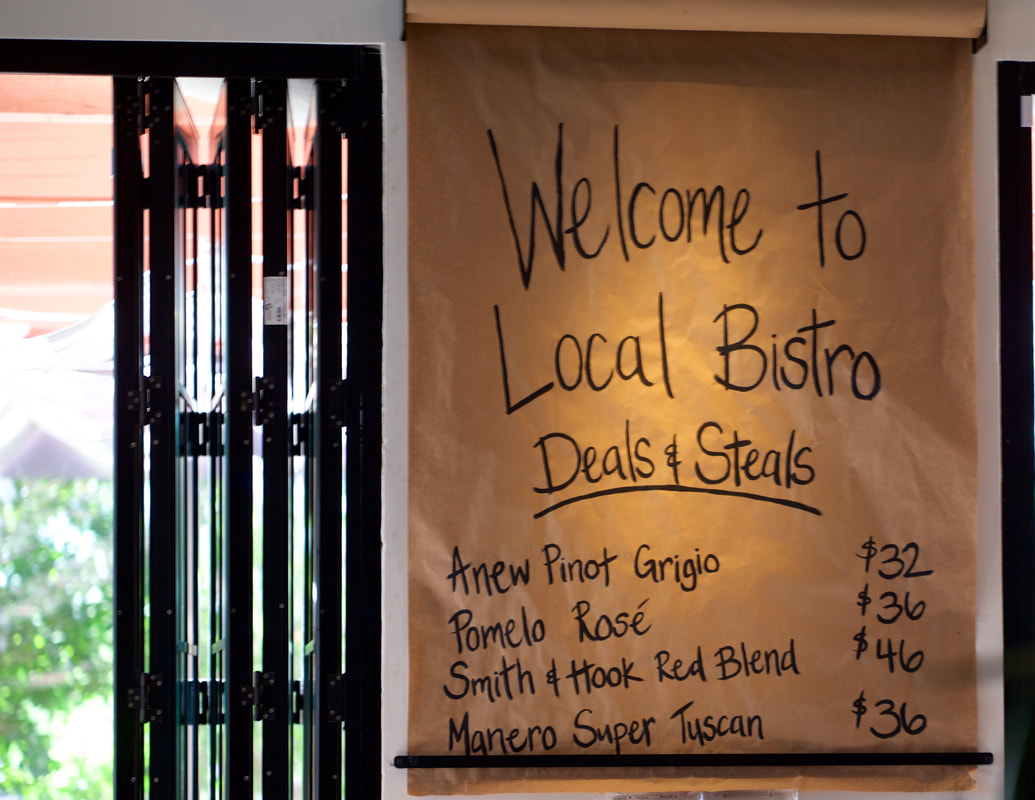 Welcome to
Local Bistro
Deals & Steals
Anew Pinot Grigio $32
Pomelo Rosé $36
Smith & Hook Red Blend $46
Manero Super Tuscan $36